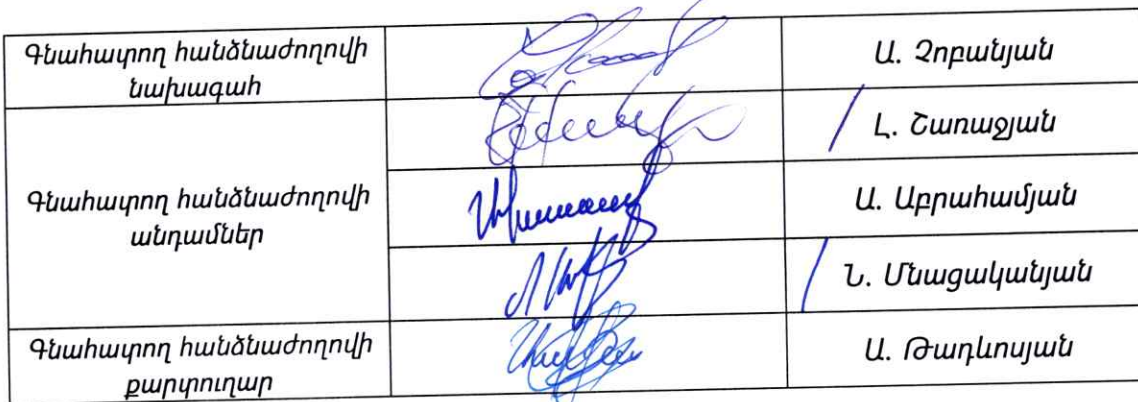 Գնահատող հանձնաժողովի
նախագահ
Ա. Չոբանյան
Գնահատող հանձնաժողովի
անդամներ
Լ. Շառաջյան
Ա. Աբրահամյան
Ն. Մնացականյան
Գնահատող հանձնաժողովի
քարտուղար
Ա. Թադևոսյան